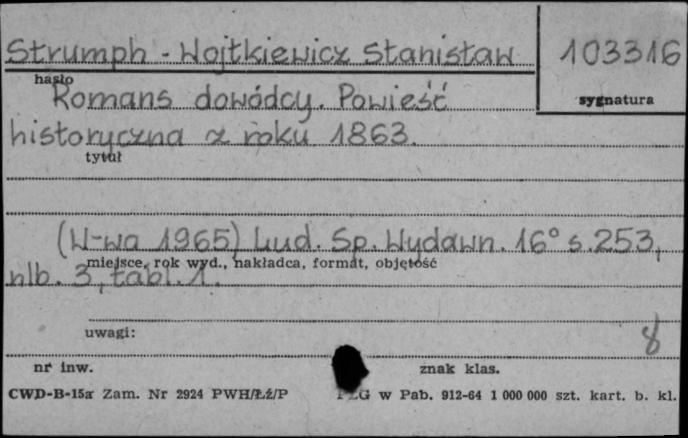 Strumph - Wojtkiewicz Stanisław 103316
hasło
sygnatura
Romans dowódcy. Powieść
historyczna z roku 1863.
tytuł
(W-wa 1965) Lud. Sp. Wydawn. 16° s. 253,
miejsce, rok wyd., nakładca, format, objętość
nlb. 3, tabl. 1.
uwagi:
8
nr inw. znak klas.
CWD-B-15a Zam. Nr 2924 PWH/Łź/P PZG w Pab. 912-64 1 000 000 szt. kart. b. kl.